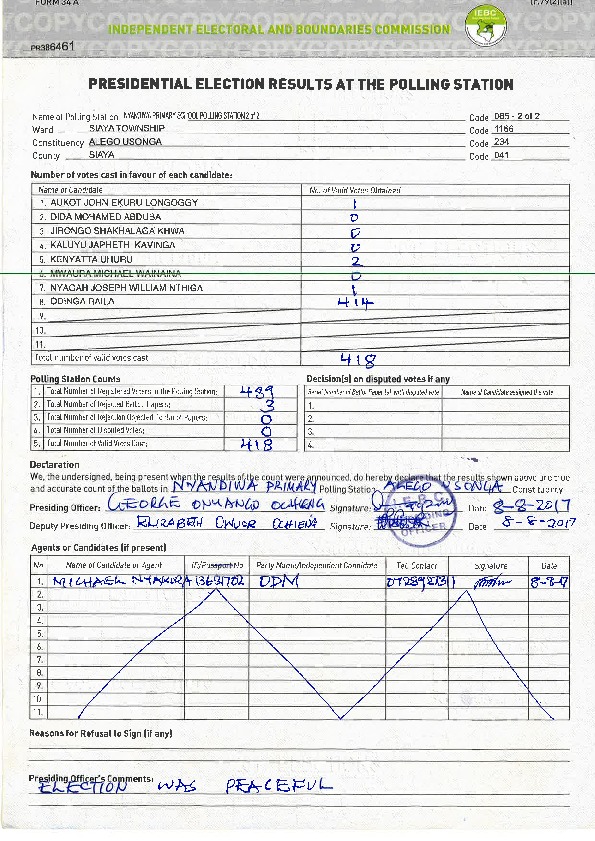 FORM 34 A
COPY COPY COPY
INDEPENDENT ELECTORAL AND BOUNDARIES COMMISSION
IEBC
PR386461
PRESIDENTIAL ELECTION RESULTS AT THE POLLING STATION
Name of Polling Station NYANDIWA PRIMARY SCHOOL POLLING STATION 2 of 2 Code 085 - 2 of 2
Ward SIAYA TOWNSHIP Code 1166
Constituency ALEGO USONGA Code 234
County SIAYA Code 041
Number of votes cast in favour of each candidate:
Name of Candidate No. of Valid Votes Obtained
1. AUKOT JOHN EKURU LONGOGGY 1
2. DIDA MOHAMED ABDUBA 0
3. JIRONGO SHAKHALAGA KHWA 0
4. KALUYU JAPHETH KAVINGA 0
5. KENYATTA UHURU 2
6. MWAURA MICHAEL WAINAINA 0
7. NYAGAH JOSEPH WILLIAM NTHIGA 1
8. ODINGA RAILA 414
9.
10.
11.
Total number of valid votes cast 418
Polling Station Counts Decision(s) on disputed votes if any
1. Total Number of Registered Voters in the Polling Station: 489
2. Total Number of Rejected Ballot Papers: 3
3. Total Number of Rejection Objected To Ballot Papers: 0
4. Total Number of Disputed Votes: 0
5. Total Number of Valid Votes Cast: 418
Serial Number of Ballot Paper(s) with disputed vote Name of Candidate assigned the vote
1.
2.
3.
4.
Declaration
We, the undersigned, being present when the results of the count were announced, do hereby declare that the results shown above are true
and accurate count of the ballots in NYANDIWA PRIMARY Polling Station, ALEGO SONGA Constituency
Presiding Officer: GEORGE ONYANGO OCHIENG Signature: Date: 8-8-2017
Deputy Presiding Officer: ELIZABETH Signature: Date 8-8-2017
I.E.B.C.
OFFICER
Agents or Candidates (if present)
No Name of Candidate or Agent ID/Passport No Party Name/Independent Candidate Tel. Contact Signature Date
1. MICHAEL ODM 8-8-17
2.
3.
4.
5.
6.
7.
8.
9.
10.
11.
Reasons for Refusal to Sign (if any)
Presiding Officer's Comments:
ELECTION WAS PEACEFUL